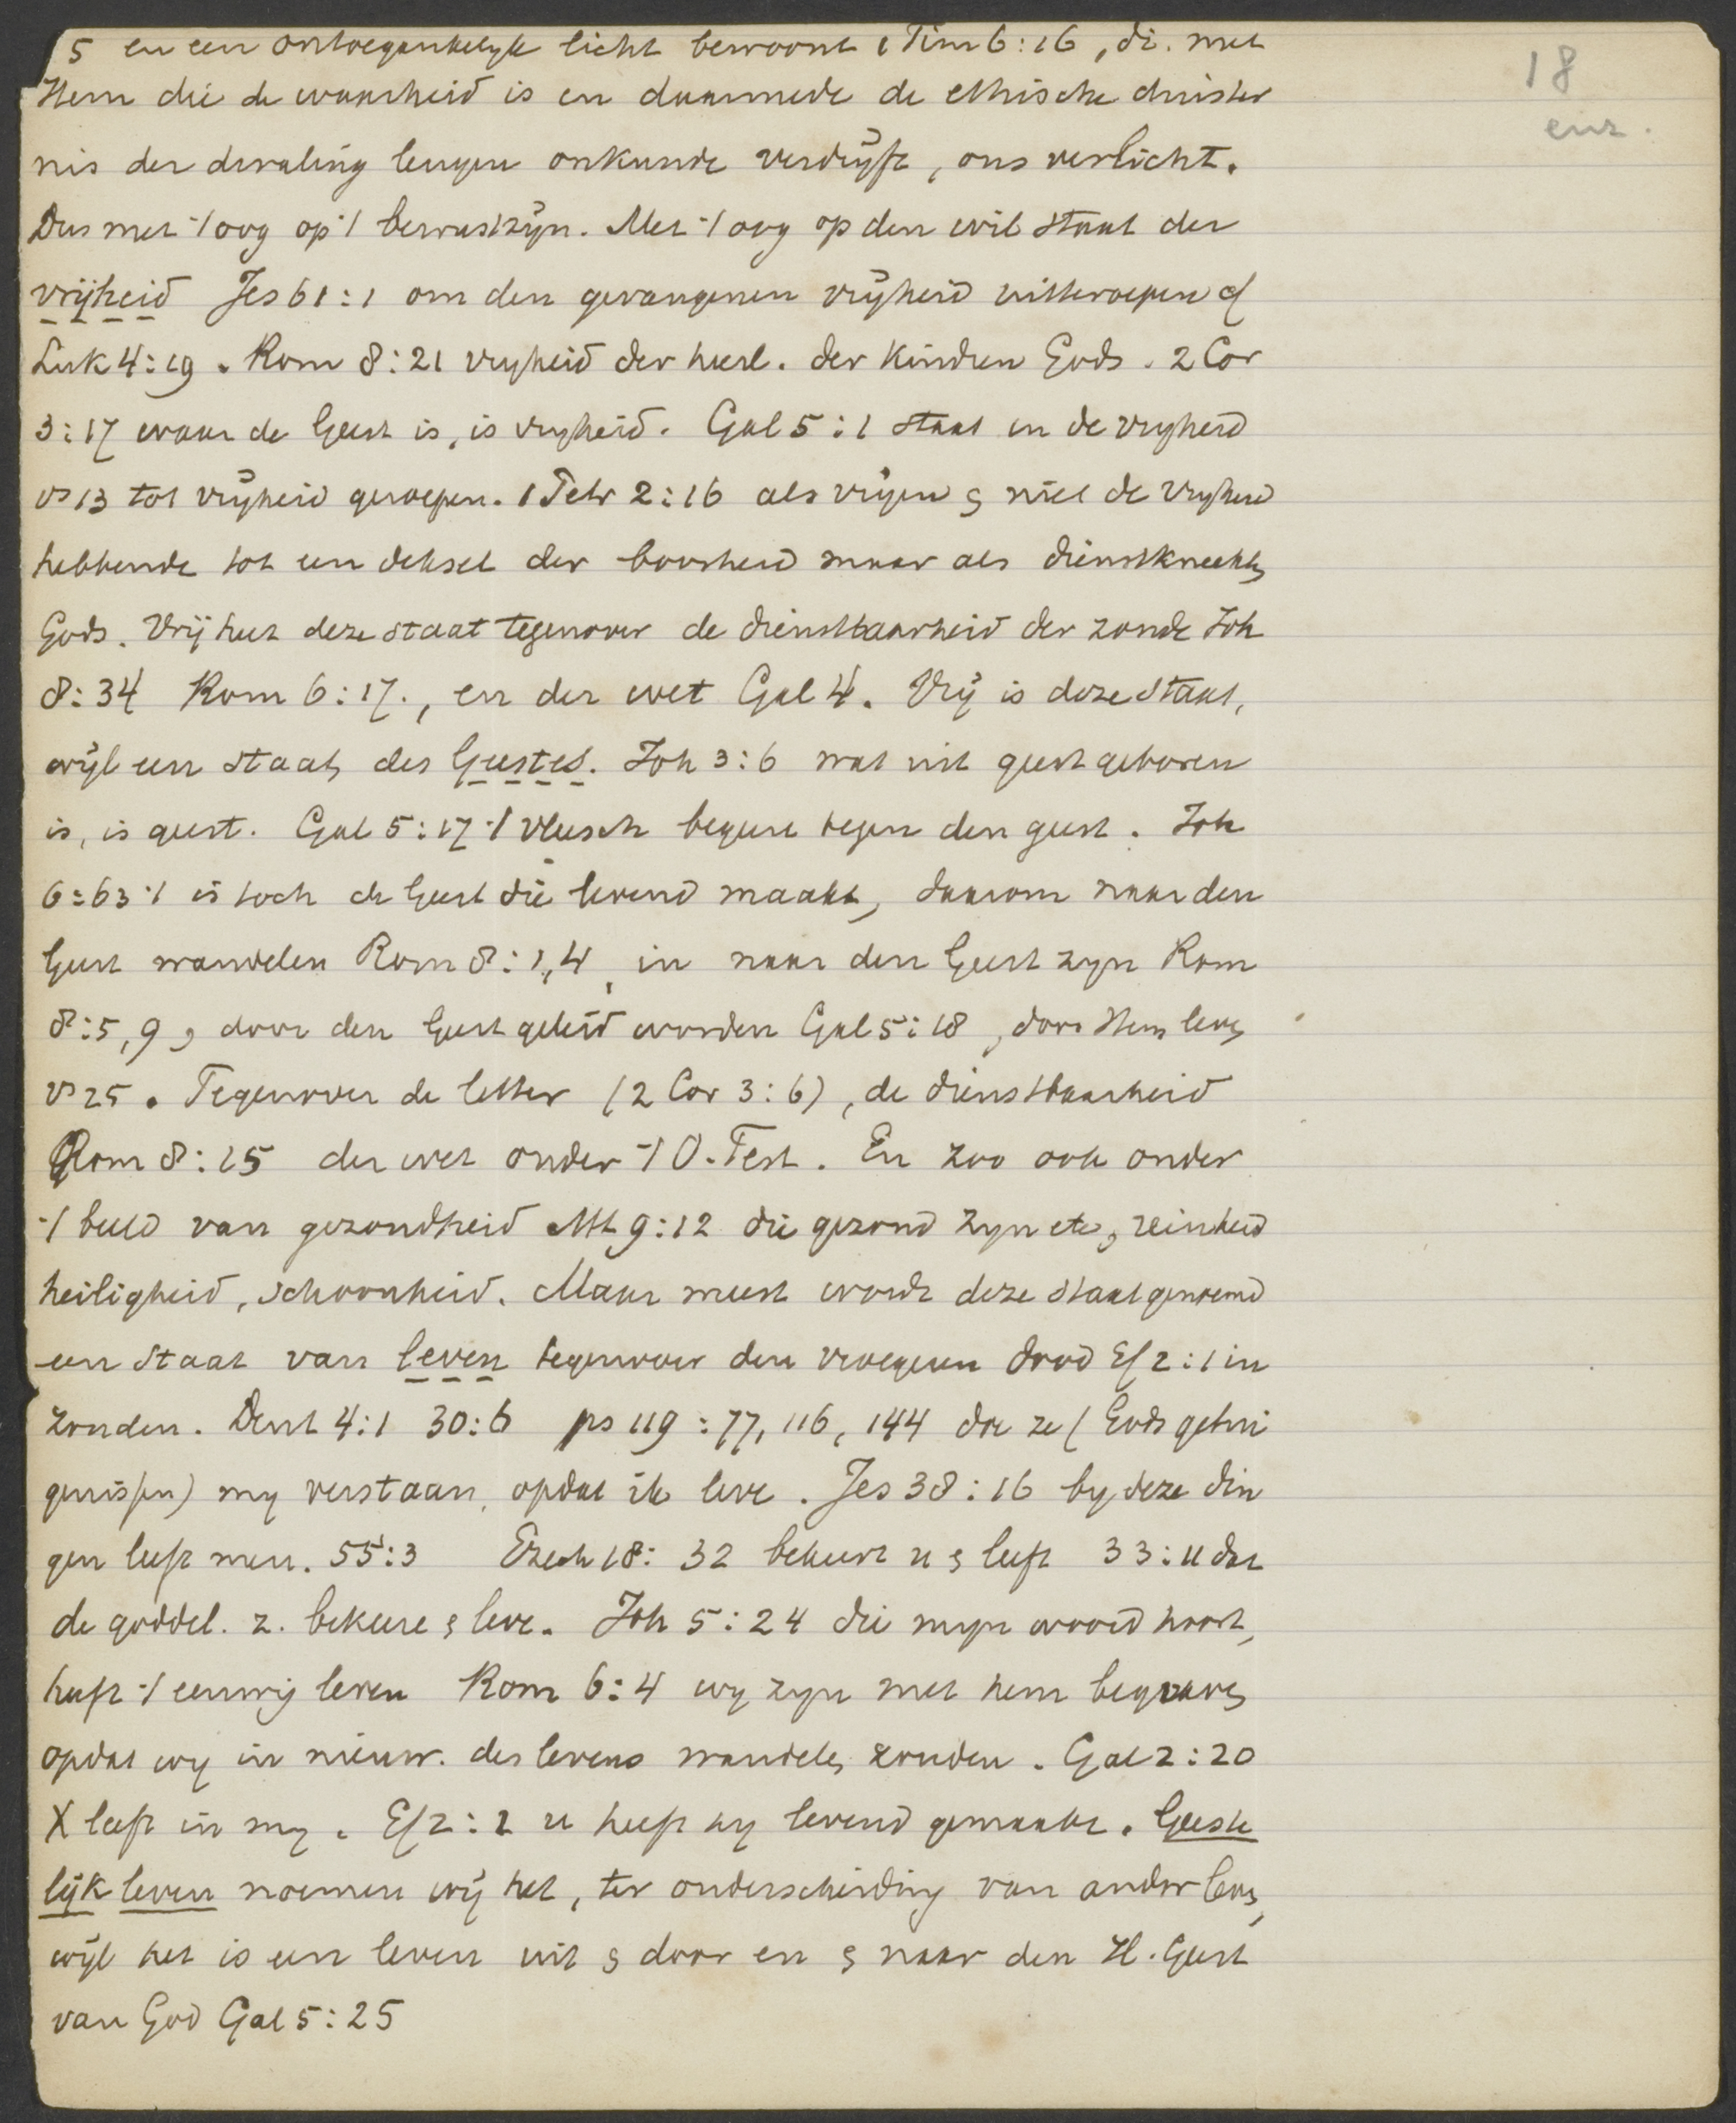 18
enz.
5 en een ontoegankelyk licht bewoont 1 Tim 6:16, di. met
Hem die de waarheid is en daarmede de ethische duister
nis der dwaling leugen onkunde verdryft, ons verlicht.
Dus met 't oog op 't bewustzyn. Met 't oog op den wil staat der
vrijheid Jes 61:1 om den gevangenen vryheid uitteroepen cf
Luk 4:19. Rom 8:21 vryheid der heerl. der kindren Gods. 2 Cor
3:17 waar de Geest is, is vryheid. Gal 5:1 staat in de vryheid
vs 13 tot vrijheid geroepen. 1 Petr 2:16 als vrijen & niet de vryheid
hebbende tot een deksel der boosheid maar als dienstknechten
Gods. Vrij heet deze staat tegenover de dienstbaarheid der zonde Joh
8:34 Rom 6:17., en der wet Gal 4. Vrij is deze staat,
wijl een staat des Geestes. Joh 3:6 wat uit geest geboren
is, is geest. Gal 5:17 't vleesch begeert tegen den geest. Joh
6:63 't is toch de Geest die levend maakt, daarom naar den
Geest wandelen Rom 8:1,4, in naar den Geest zyn Rom
8:5,9, door den Geest geleid worden Gal 5:18, door Hem leven
vs 25. Tegenover de letter (2 Cor 3:6), de dienstbaarheid
Rom 8:15 der wet onder 't O. Test. En zoo ook onder
't beeld van gezondheid Mt 9:12 die gezond zyn etc, reinheid
heiligheid, schoonheid. Maar meest wordt deze staat genoemd
een staat van leven tegenover den vroegeren dood Ef 2:1 in
zonden. Deut 4:1 30:6 ps 119:77, 116, 144 doe ze (Gods getui
genissen) my verstaan, opdat ik leve. Jes 38:16 by deze din
gen leeft men. 55:3 Ezech 18:32 bekeert u & leeft 33:11 dat
de goddel. z. bekeere & leve. Joh 5:24 die mijn woord hoort,
heeft 't eeuwig leven Rom 6:4 wy zyn met hem begraven
opdat wy in nieuw. des levens wandelen zouden. Gal 2:20
X leeft in my. Ef 2:1 u heeft hy levend gemaakt. Geeste
lijk leven noemen wij het, ter onderscheiding van ander leven,
wijl het is een leven uit & door en & naar den H. Geest
van God Gal 5:25